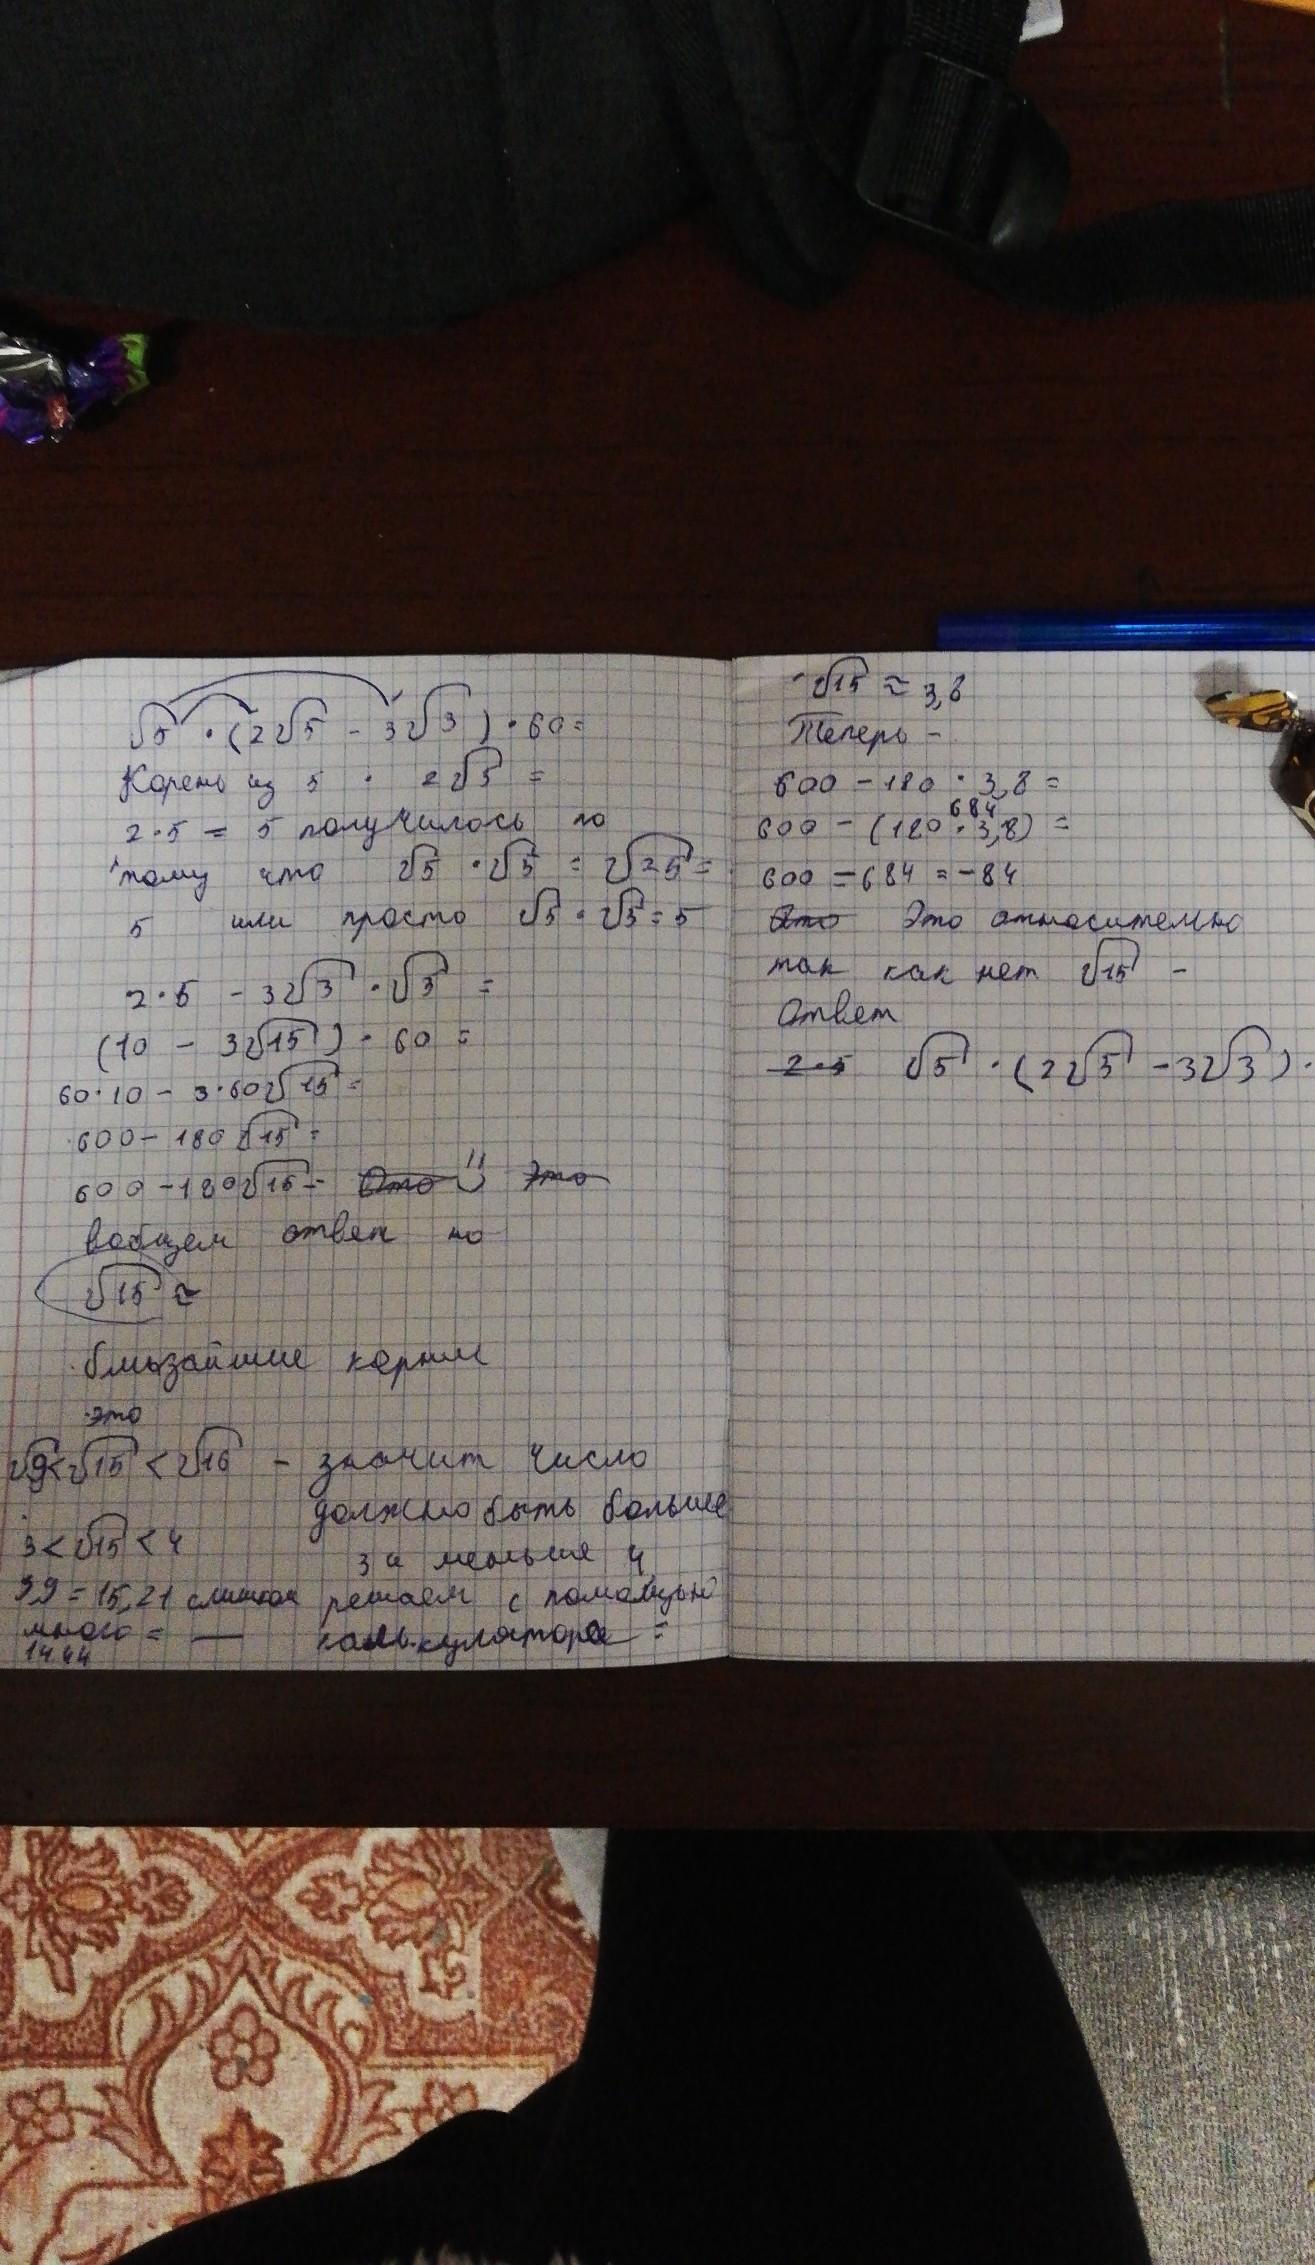 √5 · (2√5 - 3√3) · 60 =
Корень из 5 · 2√5 =
2·5 = 5 получилось по
тому что √5 · √5 = √25 =
5 или просто √5 · √5 = 5
2·5 - 3√3 · √5 =
(10 - 3√15) · 60 =
60·10 - 3·60√15 =
600 - 180√15 =
600 - 180√15 - Это Это
вобщем ответ но
√15 ≈
ближайшие корни
это
√9 < √15 < √16 - значит число
должно быть больше
3 < √15 < 4
3 и меньше 4
3,9 = 15,21 слишком решаем с помощью
много = — калькулятора =
14.44
√15 ≈ 3,8
Теперь -
600 - 180 · 3,8 =
684
600 - (180 · 3,8) =
600 - 684 = -84
Это Это относительно
так как нет √15 -
Ответ
2·5 √5 · (2√5 - 3√3) ·